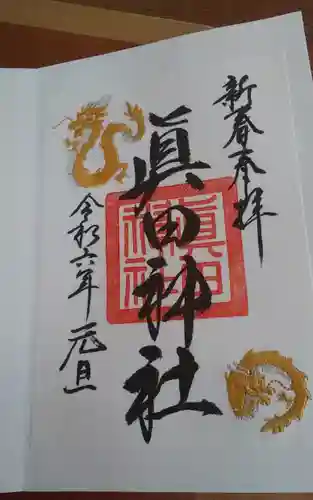 新春奉拝
眞田神社
令和六年 元旦
眞田
神社